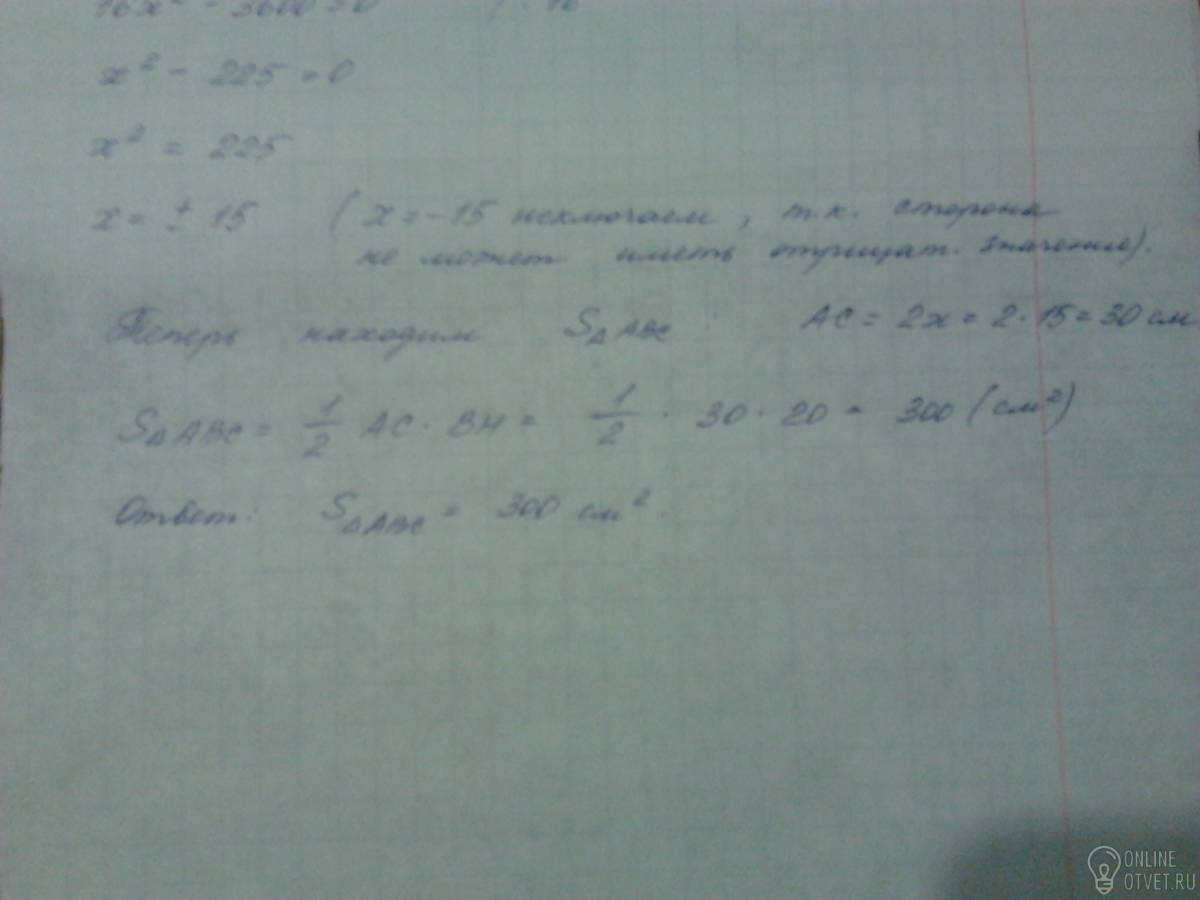 16x² - 3600 = 0 | : 16
x² - 225 = 0
x² = 225
x = ± 15 ( x = -15 исключаем, т.к. сторона
не может иметь отрицат. значение).
Теперь находим S△ABC AC = 2x = 2·15 = 30 см
S△ABC = 1/2 AC · BH = 1/2 · 30 · 20 = 300 (см²)
Ответ: S△ABC = 300 см².
ONLINE
OTVET.RU